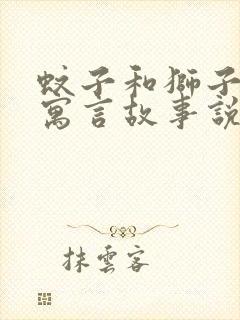 蚊子和獅子
寓言故事說
抹雲客